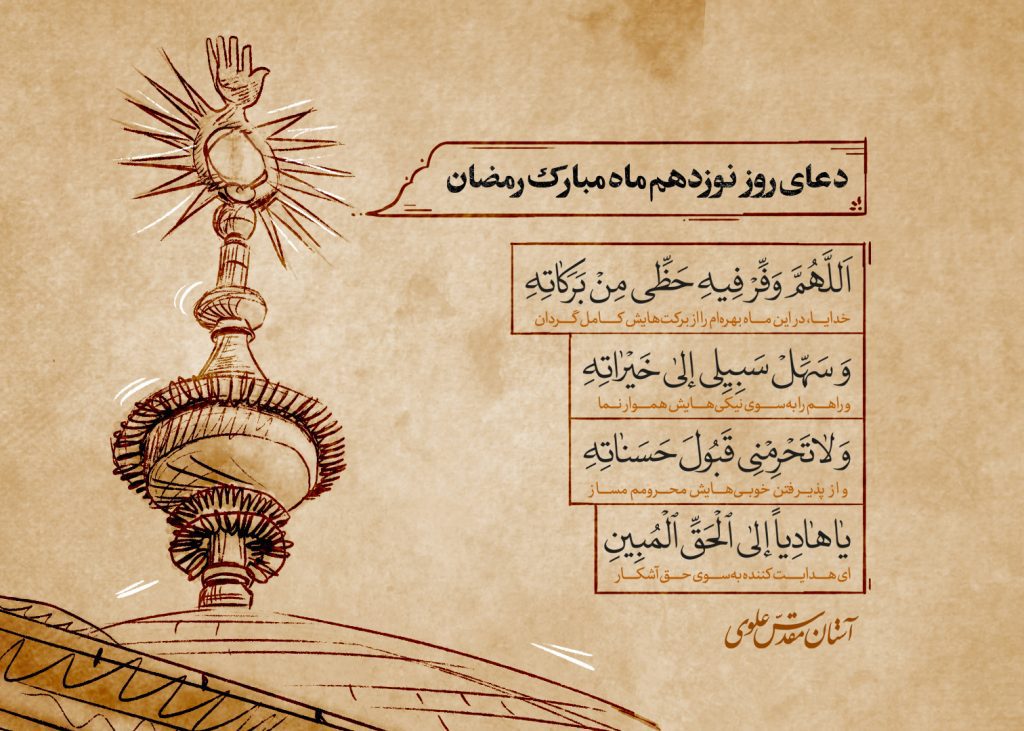 دعای روز نوزدهم ماه مبارک رمضان
اَللَّهُمَّ وَفِّرْ فِیهِ حَظِّی مِنْ بَرَکَاتِهِ
خدایا، در این ماه بهره‌ام را از برکت‌هایش کامل گردان
وَ سَهِّلْ سَبِیلِی إِلیٰ خَیْرٰاتِهِ
و راهم را به سوی نیکی‌هایش هموار نما
وَ لاٰ تَحْرِمْنِی قَبُولَ حَسَنٰاتِهِ
و از پذیرفتن خوبی‌هایش محرومم مساز
یٰا هٰادِیاً إِلیٰ ٱلْحَقِّ ٱلْمُبِینِ
ای هدایت‌کننده به سوی حق آشکار
آستان مقدّس علوی